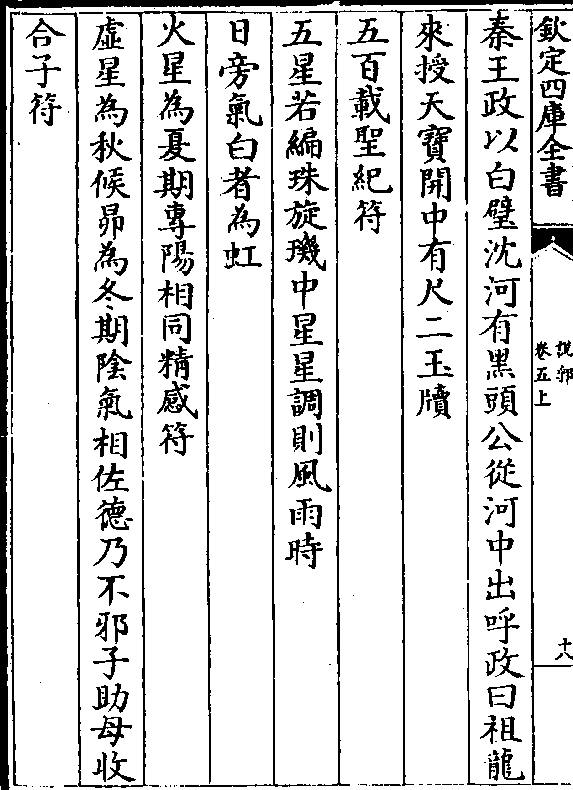 欽定四庫全書
說郛
卷五上
十八
秦王政以白璧沈河有黑頭公從河中出呼政曰祖龍
來授天寶開中有尺二玉牘
五百載聖紀符
五星若編珠旋璣中星星調則風雨時
日旁氣白者為虹
火星為夏期專陽相同精感符
虛星為秋候昴為冬期陰氣相佐德乃不邪子助母收
合子符